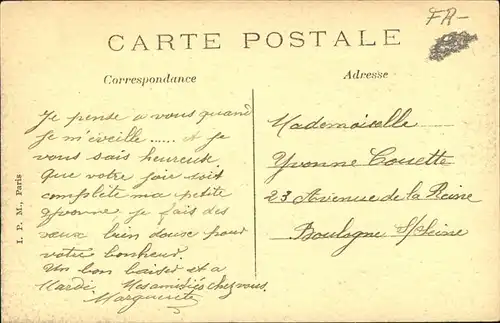 FR-
CARTE POSTALE
Correspondance
Adresse
Je pense a vous quand
je m'eveille ...... et je
vous sais heureuse
que votre joie soit
complète ma petite
Yvonne, je fais des
vœux bien doux pour
votre bonheur.
Un bon baiser et a
Mardi. Mes amitiés chez vous.
Marguerite
Mademoiselle
Yvonne Couette
23 Avenue de la Reine
Boulogne S/Seine
I. P. M., Paris